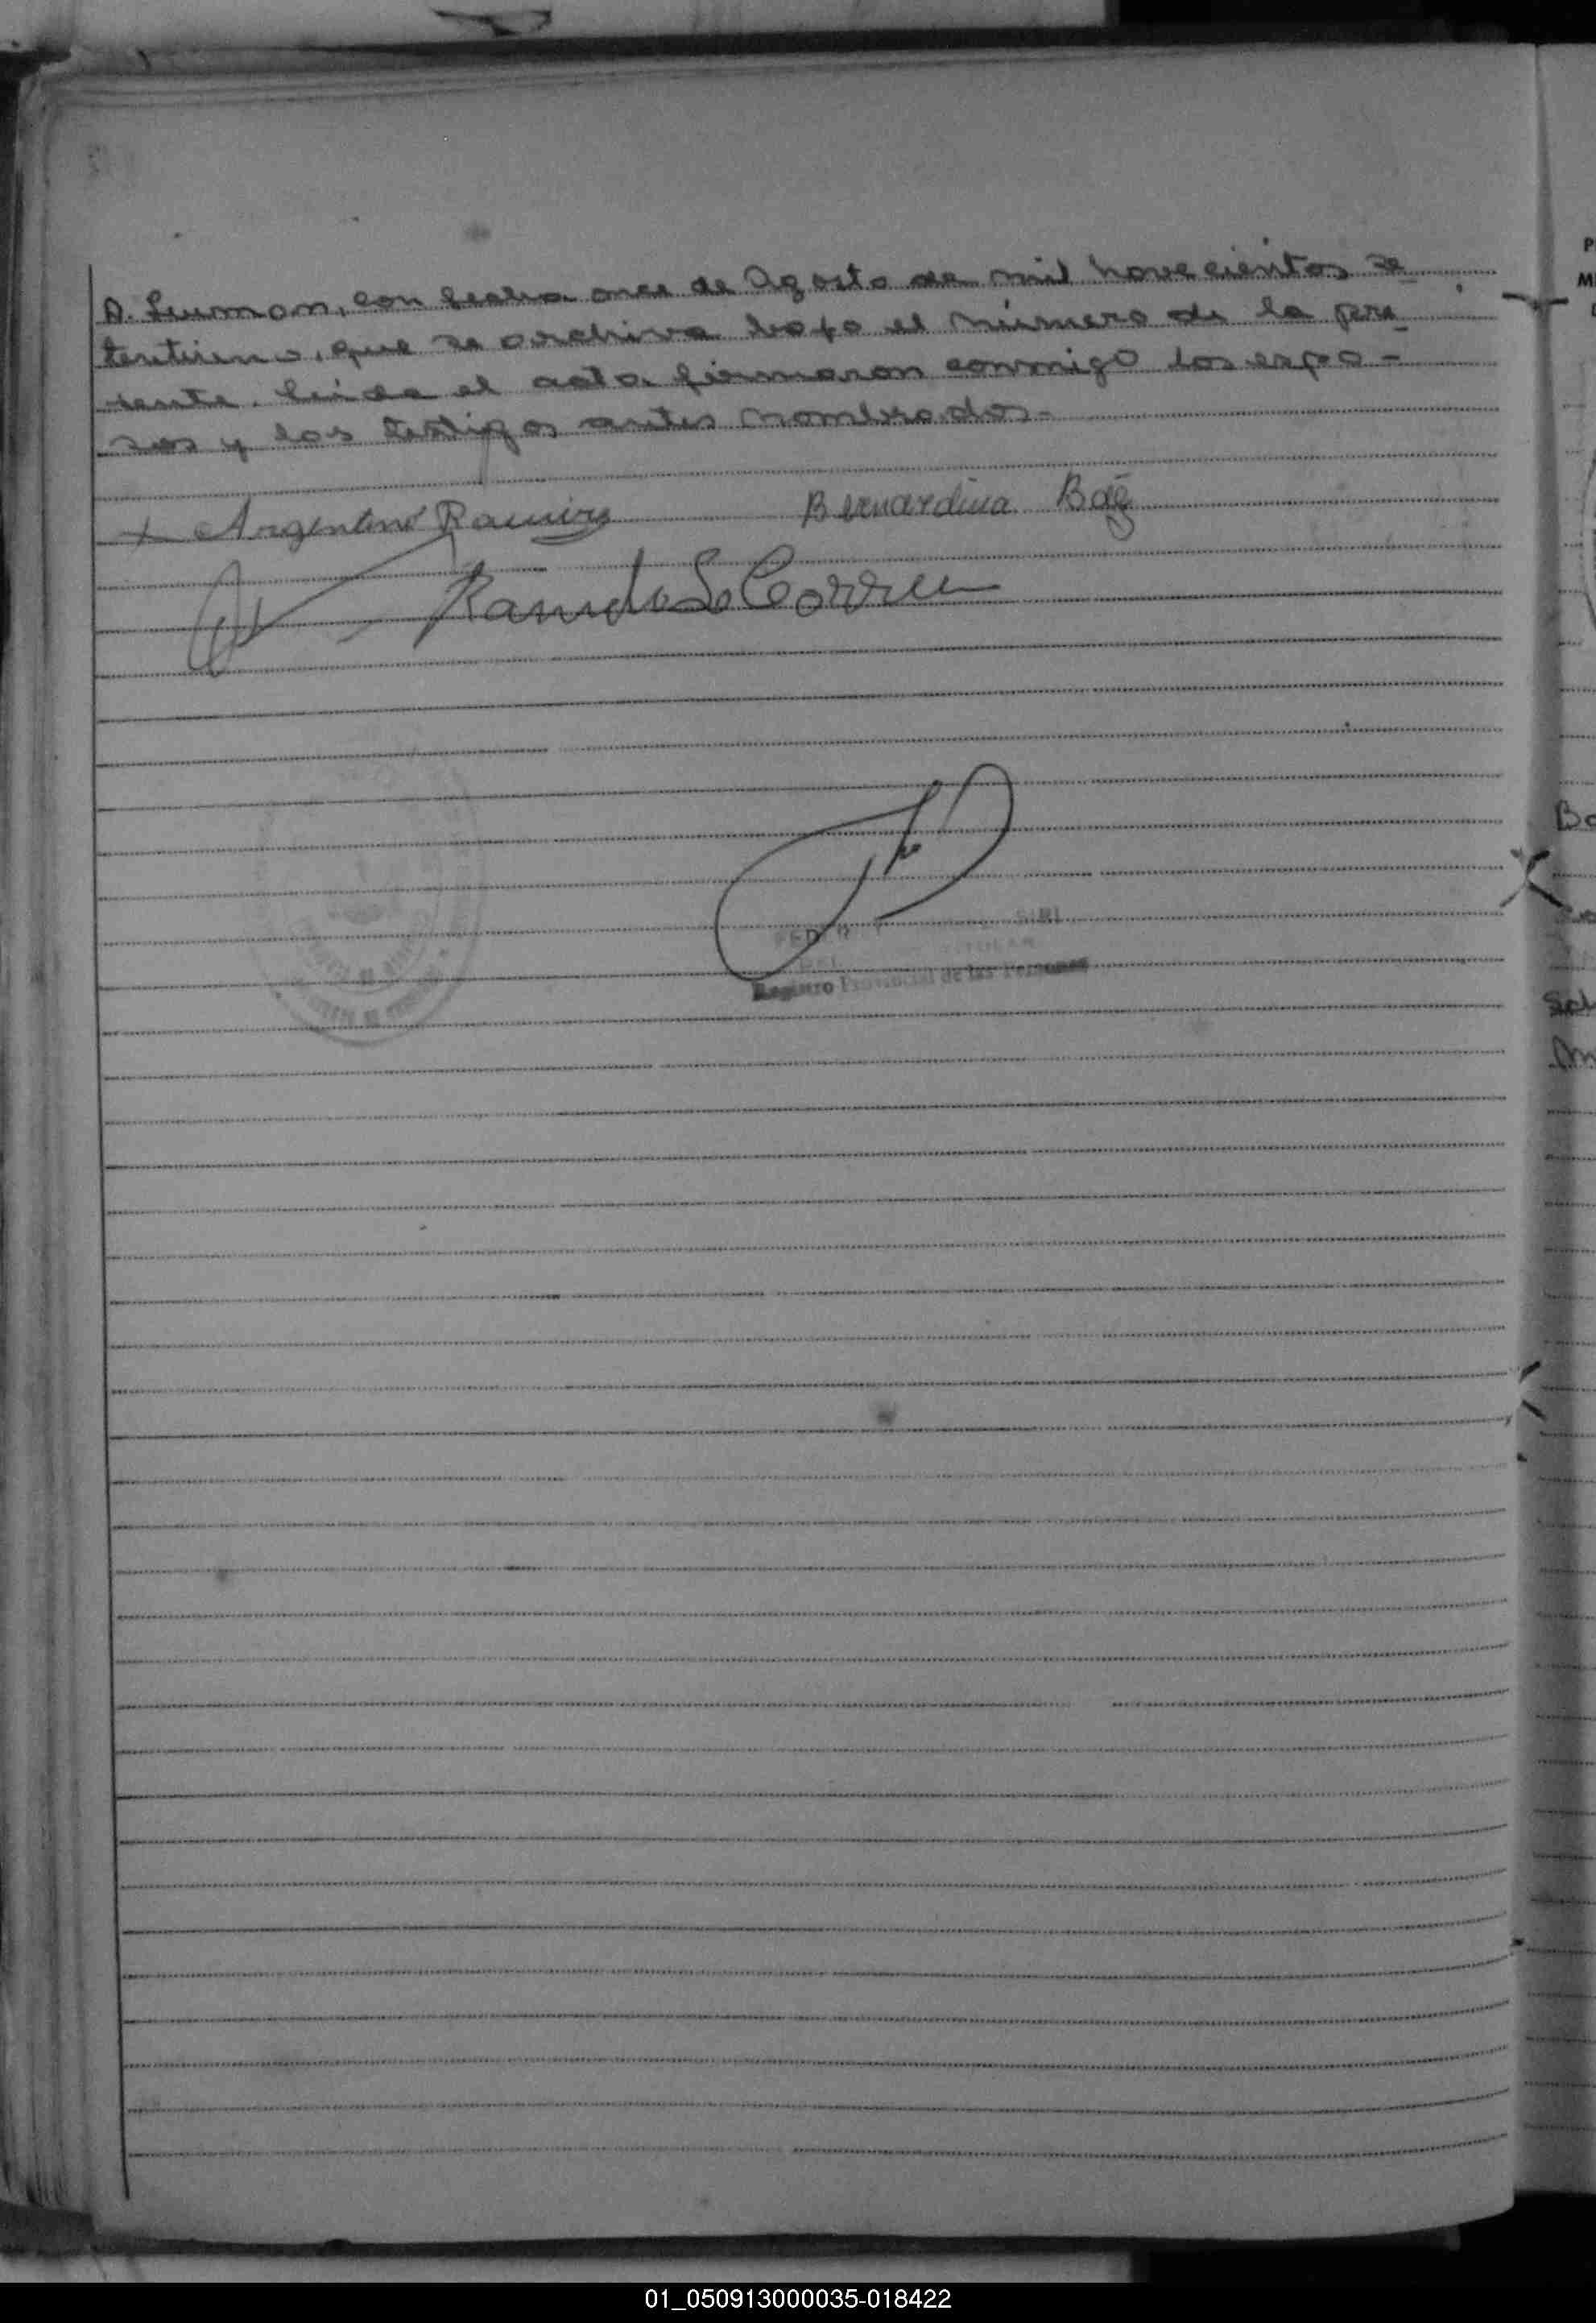 con fecha once de Agosto de mil novecientos se
tentiuno, que se archiva bajo el número de la pre
sente. leída el acta firmaron conmigo los espo-
sos y los testigos antes nombrados-
Argentino Ramirez Bernardina Baéz
Correa
Registro Provincial de las Personas
01_050913000035-018422